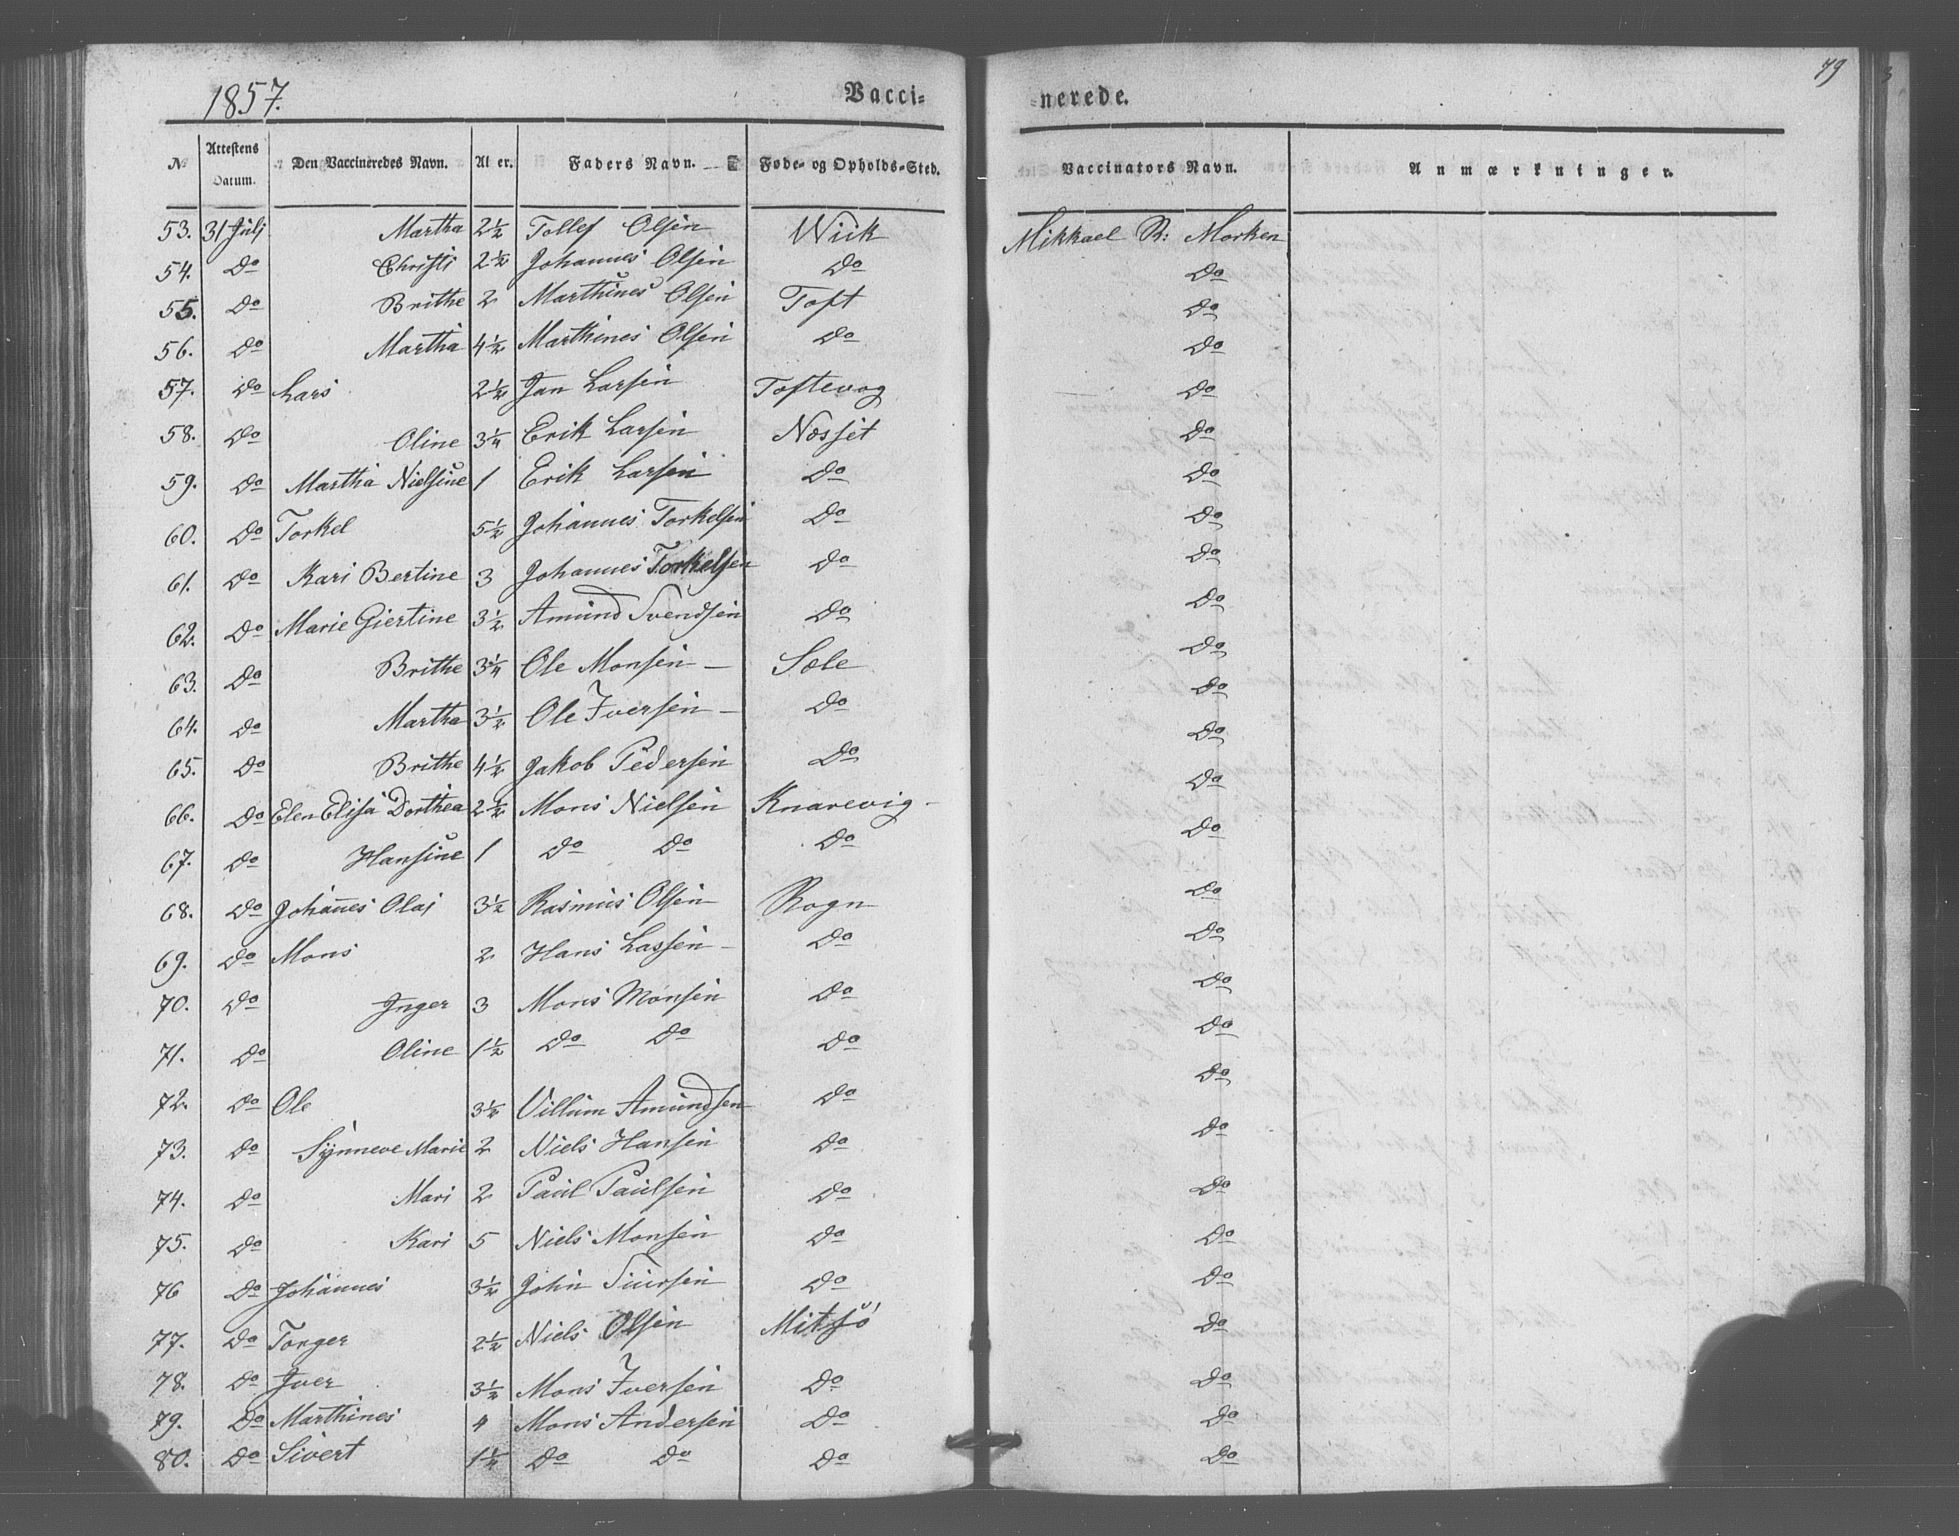 1857. Vacci- -nerede. 79
3
No Attestens Datum. Den Vaccineredes Navn. Al er. Faders Navn. Føde- og Opholds-Sted. Vaccinators Navn. Anmærkninger.
53. 31 Julj Martha 2½ Tollef Olsen Wiik Mikkael R: Morken
54. do Christi 2½ Johannes Olsen do do
55. do Brithe 2 Marthines Olsen Toft do
56. do Martha 4½ Marthines Olsen do do
57. do Lars 2½ Jan Larsen Toftevog do
58. do Oline 3¼ Erik Larsen Nosset do
59. do Martha Nielsine 1 Erik Larsen do do
60. do Torkel 5½ Johannes Torkelsen do do
61. do Kari Bertine 3 Johannes Torkelsen do do
62. do Marie Giertine 3½ Amund Svendsen do do
63. do Brithe 3¼ Ole Monsen Sæle do
64. do Martha 3½ Ole Iversen do do
65. do Brithe 4½ Jakob Pedersen do do
66. do Elen Elisa Dorthea 2½ Mons Nielsen Knarevig do
67. do Hansine 1 do do do do
68. do Johannes Olai 3½ Rasmus Olsen Rogn do
69. do Mons 2 Hans Lassen do do
70. do Inger 3 Mons Monsen do do
71. do Oline 1½ do do do do
72. do Ole 3½ Villum Amundsen do do
73. do Synneve Marie 2 Niels Hansen do do
74. do Mari 2 Paul Paulsen do do
75. do Kari 5 Niels Monsen do do
76 do Johannes 3½ John do do
77. do Torger 2½ Niels Olsen Mitsø do
78. do Iver 3½ Mons Iversen do do
79. do Marthines 4 Mons Andersen do do
80. do Sivert 1½ do do do do